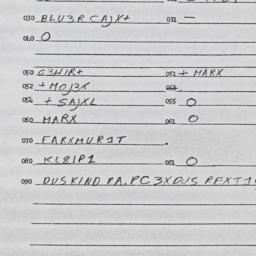 030 BLU3R CAJX+ 031 —
040 O
050 G3HIR+ 051 + MARX
052 + MOJ3X 053
054 + SAJXL 055 O
060 MARX 061 O
070 FARXMUR1T .
080 KL8IP1 081 O
090 DUSKIND PA, PC3XDUS RFXT1